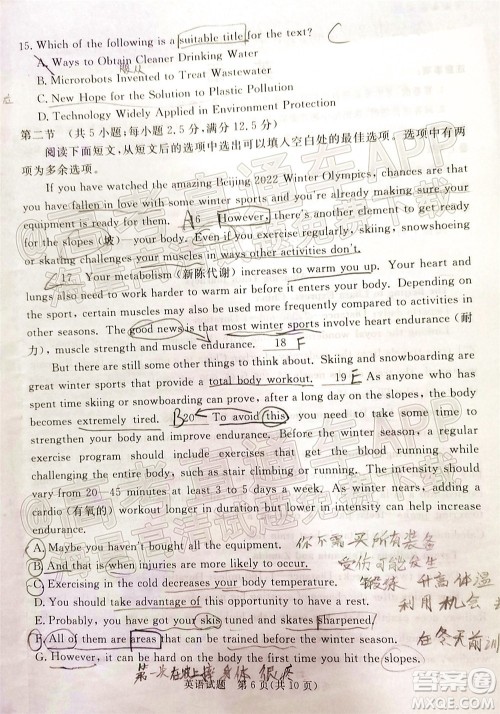 15. Which of the following is a suitable title for the text? C
A. Ways to Obtain Cleaner Drinking Water
B. Microrobots Invented to Treat Wastewater
C. New Hope for the Solution to Plastic Pollution
D. Technology Widely Applied in Environment Protection
第二节 (共5小题;每小题2.5分,满分12.5分)
阅读下面短文,从短文后的选项中选出可以填入空白处的最佳选项。选项中有两
项为多余选项。
If you have watched the amazing Beijing 2022 Winter Olympics, chances are that
you have fallen in love with winter sports and you're already making sure your
equipment is ready for them. A 16 However, there's another element to get ready
for the slopes (坡) — your body. Even if you exercise regularly, skiing, snowshoeing
or skating challenges your muscles in ways other activities don't.
C 17 Your metabolism (新陈代谢) increases to warm you up. Your heart and
lungs also need to work harder to warm and move your body. Depending on the
sport, certain muscles may also be used more frequently compared to activities in
other seasons. The good news is that most winter sports involve heart endurance (耐
力), muscle strength and muscle endurance. 18 F
But there are still other things to think about. Skiing and snowboarding are
great winter sports that provide a total body workout. 19 E As a result, hours
spent time skiing or snowboarding can prove, after a day on the slopes, the body
becomes extremely tired. B 20 To avoid this, you need to take some time to
strengthen your body and improve endurance. Before the winter season, a regular
exercise program should include exercises that get the blood running while
challenging the entire body, such as stair climbing or running. The intensity should
vary from 20—45 minutes at least 3 to 6 days a week. As winter nears, adding a
cardio (有氧的) workout that increases the intensity will further challenge your
endurance.
A. Maybe you haven't bought all the equipment. 你不需买所有装备
B. And that is when injuries are more likely to occur. 受伤可能发生
C. Exercising in the cold decreases your body temperature. 锻炼 升高体温
D. You should take advantage of this opportunity to have a rest. 利用机会
E. Probably, you have got your skis tuned and skates sharpened.
F. All of them are areas that can be trained before the winter season. 在冬天前训
G. However, it can be hard on the body the first time you hit the slopes.
第一次在坡上 身体 很
英语试题 第6页(共10页)